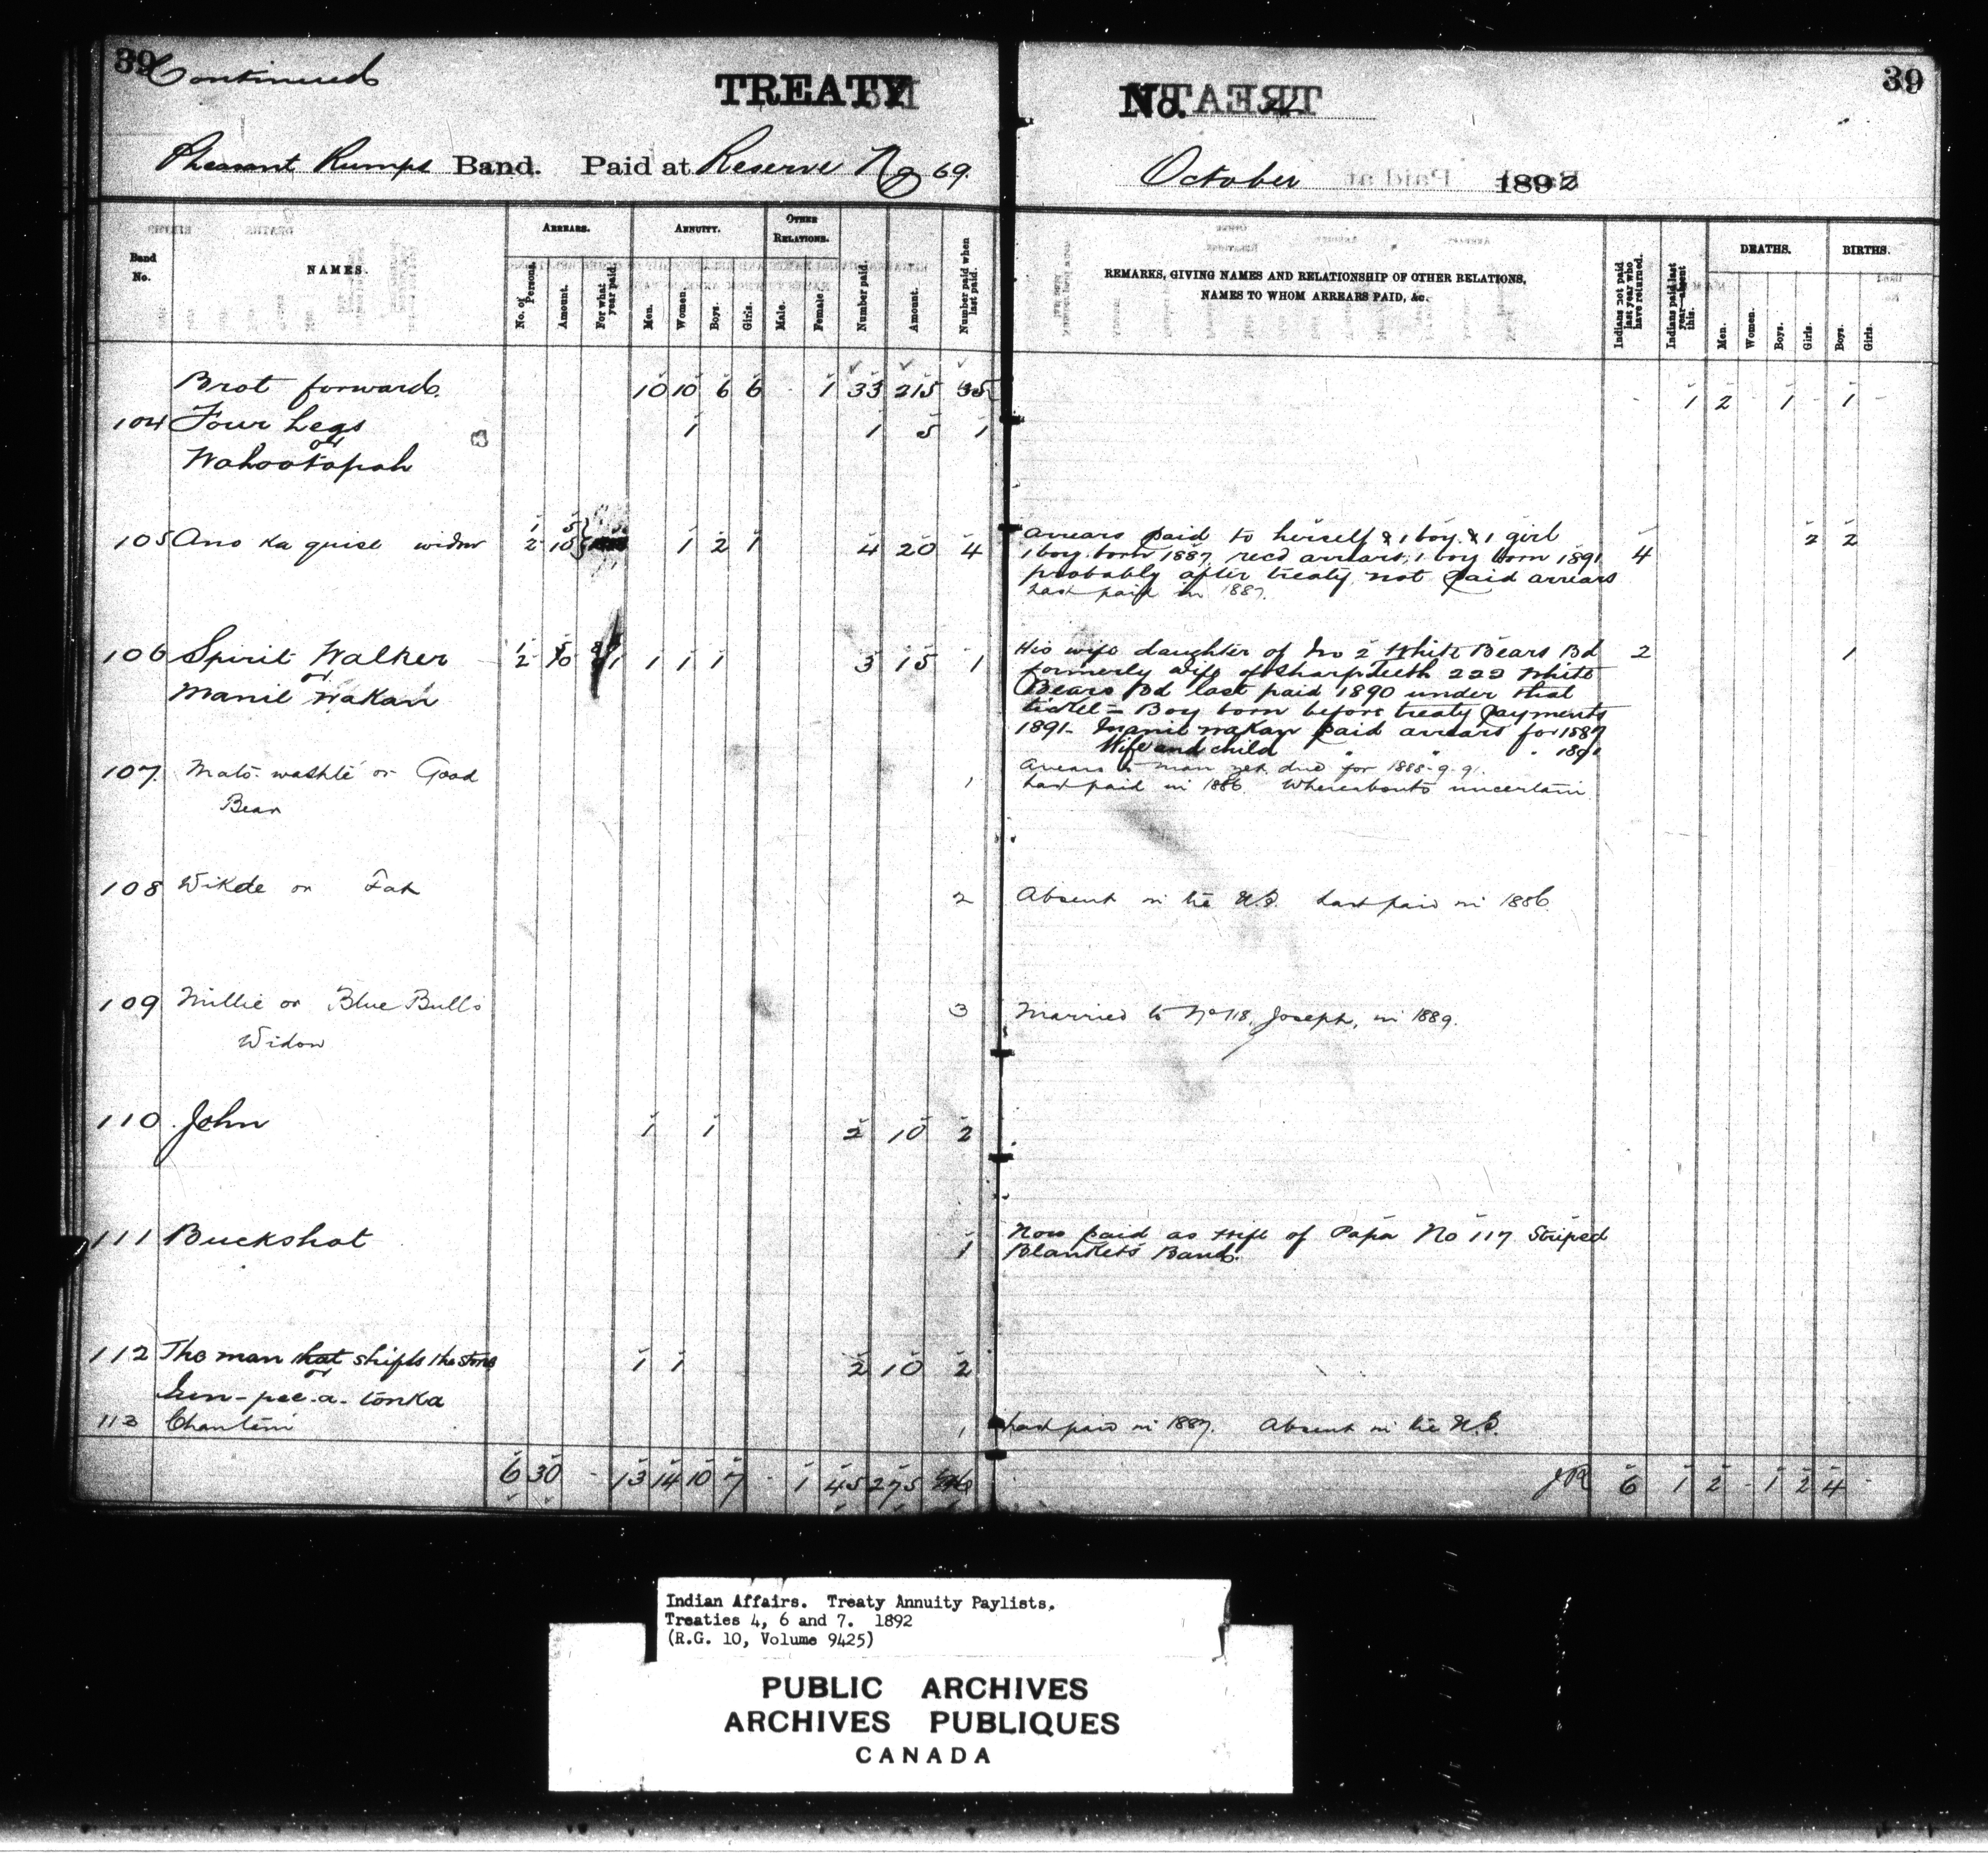 39 Continued TREATY No. 4 39
Pheasant Rumps Band. Paid at Reserve No 69. October 1892
Band No.
NAMES.
ARREARS.
No. of Persons.
Amount.
For what year paid.
ANNUITY.
Men.
Women.
Boys.
Girls.
OTHER RELATIONS.
Male.
Female.
Number paid.
Amount.
Number paid when last paid.
REMARKS, GIVING NAMES AND RELATIONSHIP OF OTHER RELATIONS,
NAMES TO WHOM ARREARS PAID, &c.
Indians not paid last year who have returned.
Indians paid last year absent this.
DEATHS.
Men.
Women.
Boys.
Girls.
BIRTHS.
Boys.
Girls.
Brot forward. 10 10 6 6 1 33 215 35 1 2 1 1
104 Four Legs 1 1 5 1
or
Wahootopah
105 Ano ka quise widow 1 5 2 10 1 2 1 4 20 4 4 2 2
Arrears paid to herself & 1 boy & 1 girl
1 boy born 1887 recd arrears, 1 boy born 1891
probably after treaty, not paid arrears
Last paid in 1887.
106 Spirit Walker 1 5 2 10 1 1 1 3 15 1 2 1
or
Manil Wakan
His wife daughter of No 2 White Bears Bd
formerly wife of Sharp Teeth 222 White
Bears Bd last paid 1890 under that
ticket - Boy born before treaty payments
1891 - Manil Wakan paid arrears for 1887
Wife and child " " " 1891
Arrears to man yet due for 1888-9-91.
107 Mato washté or Good 1 Last paid in 1886. Whereabouts uncertain.
Bear
108 Wikde or Fat 2 Absent in the U.S. Last paid in 1886.
109 Millie or Blue Bulls 3 Married to No 118, Joseph, in 1889.
Widow
110 John 1 1 2 10 2
111 Buckshot 1 Now paid as wife of Papa No 117 Striped
Blankets Band.
112 The man that shifts the stone 1 1 2 10 2
or
-pee-a-tonka
113 1 Last paid in 1887. Absent in the U.S.
6 30 - 13 14 10 7 - 1 45 275 JR 6 1 2 - 1 2 4 -
Indian Affairs. Treaty Annuity Paylists.
Treaties 4, 6 and 7. 1892
(R.G. 10, Volume 9425)
PUBLIC ARCHIVES
ARCHIVES PUBLIQUES
CANADA